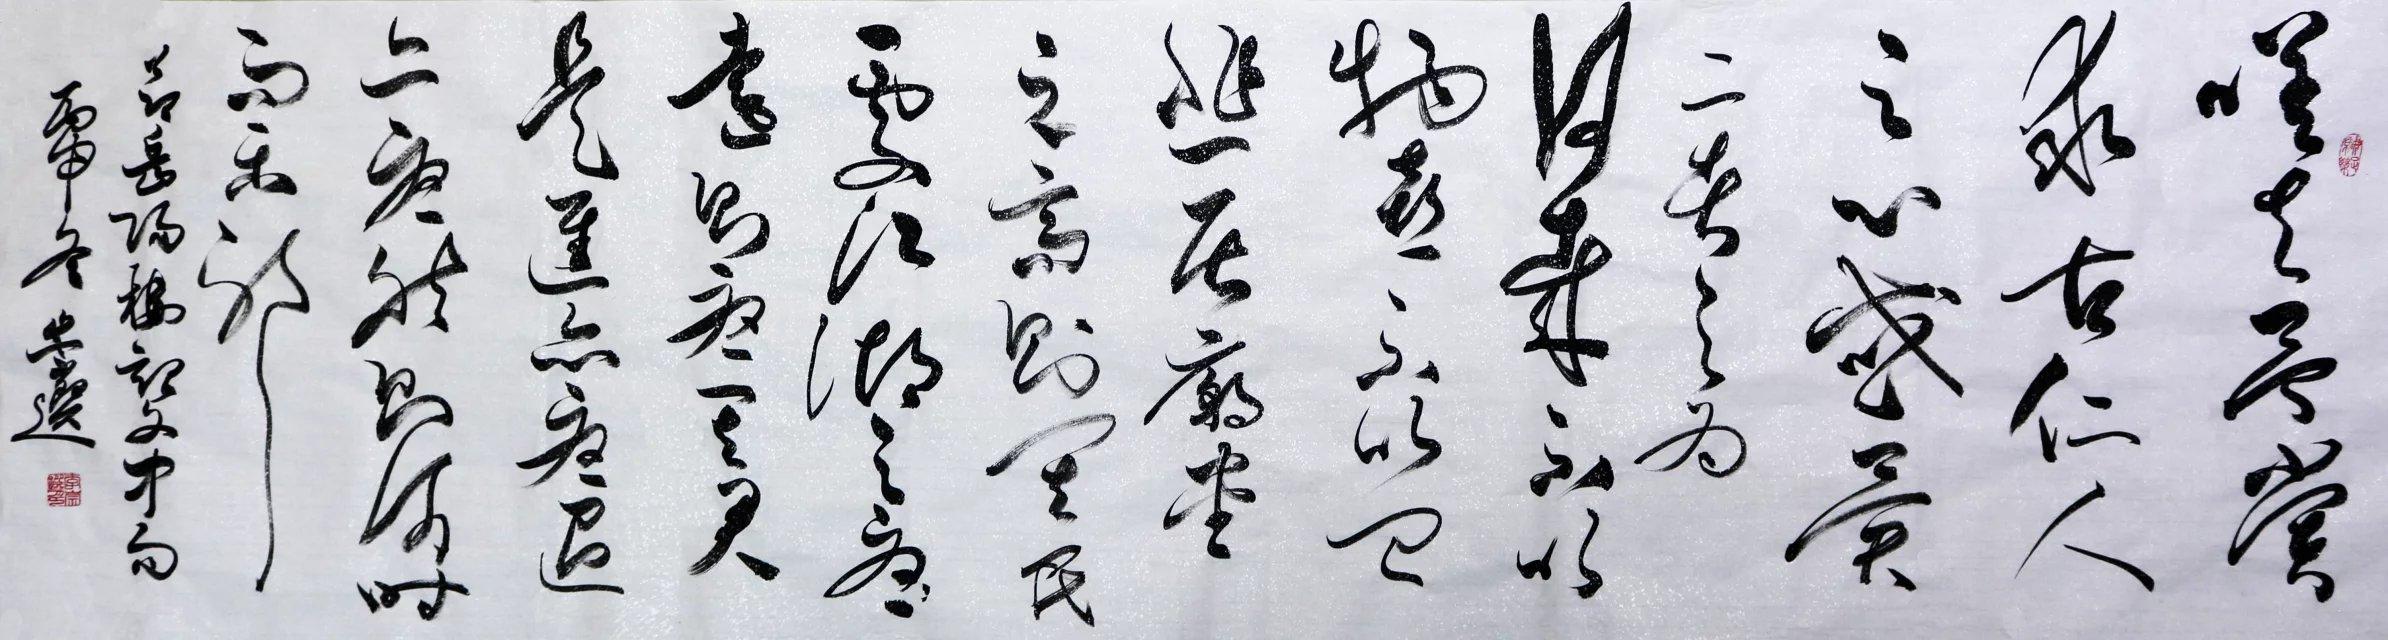 嗟夫予嘗
求古仁人
之心或異
二者之為
何哉不以
物喜不以己
悲居廟堂
之高則其民
處江湖之憂
遠則憂其君
是進亦憂退
亦憂然則何時
而樂耶
節岳陽樓記文中句
丙申冬